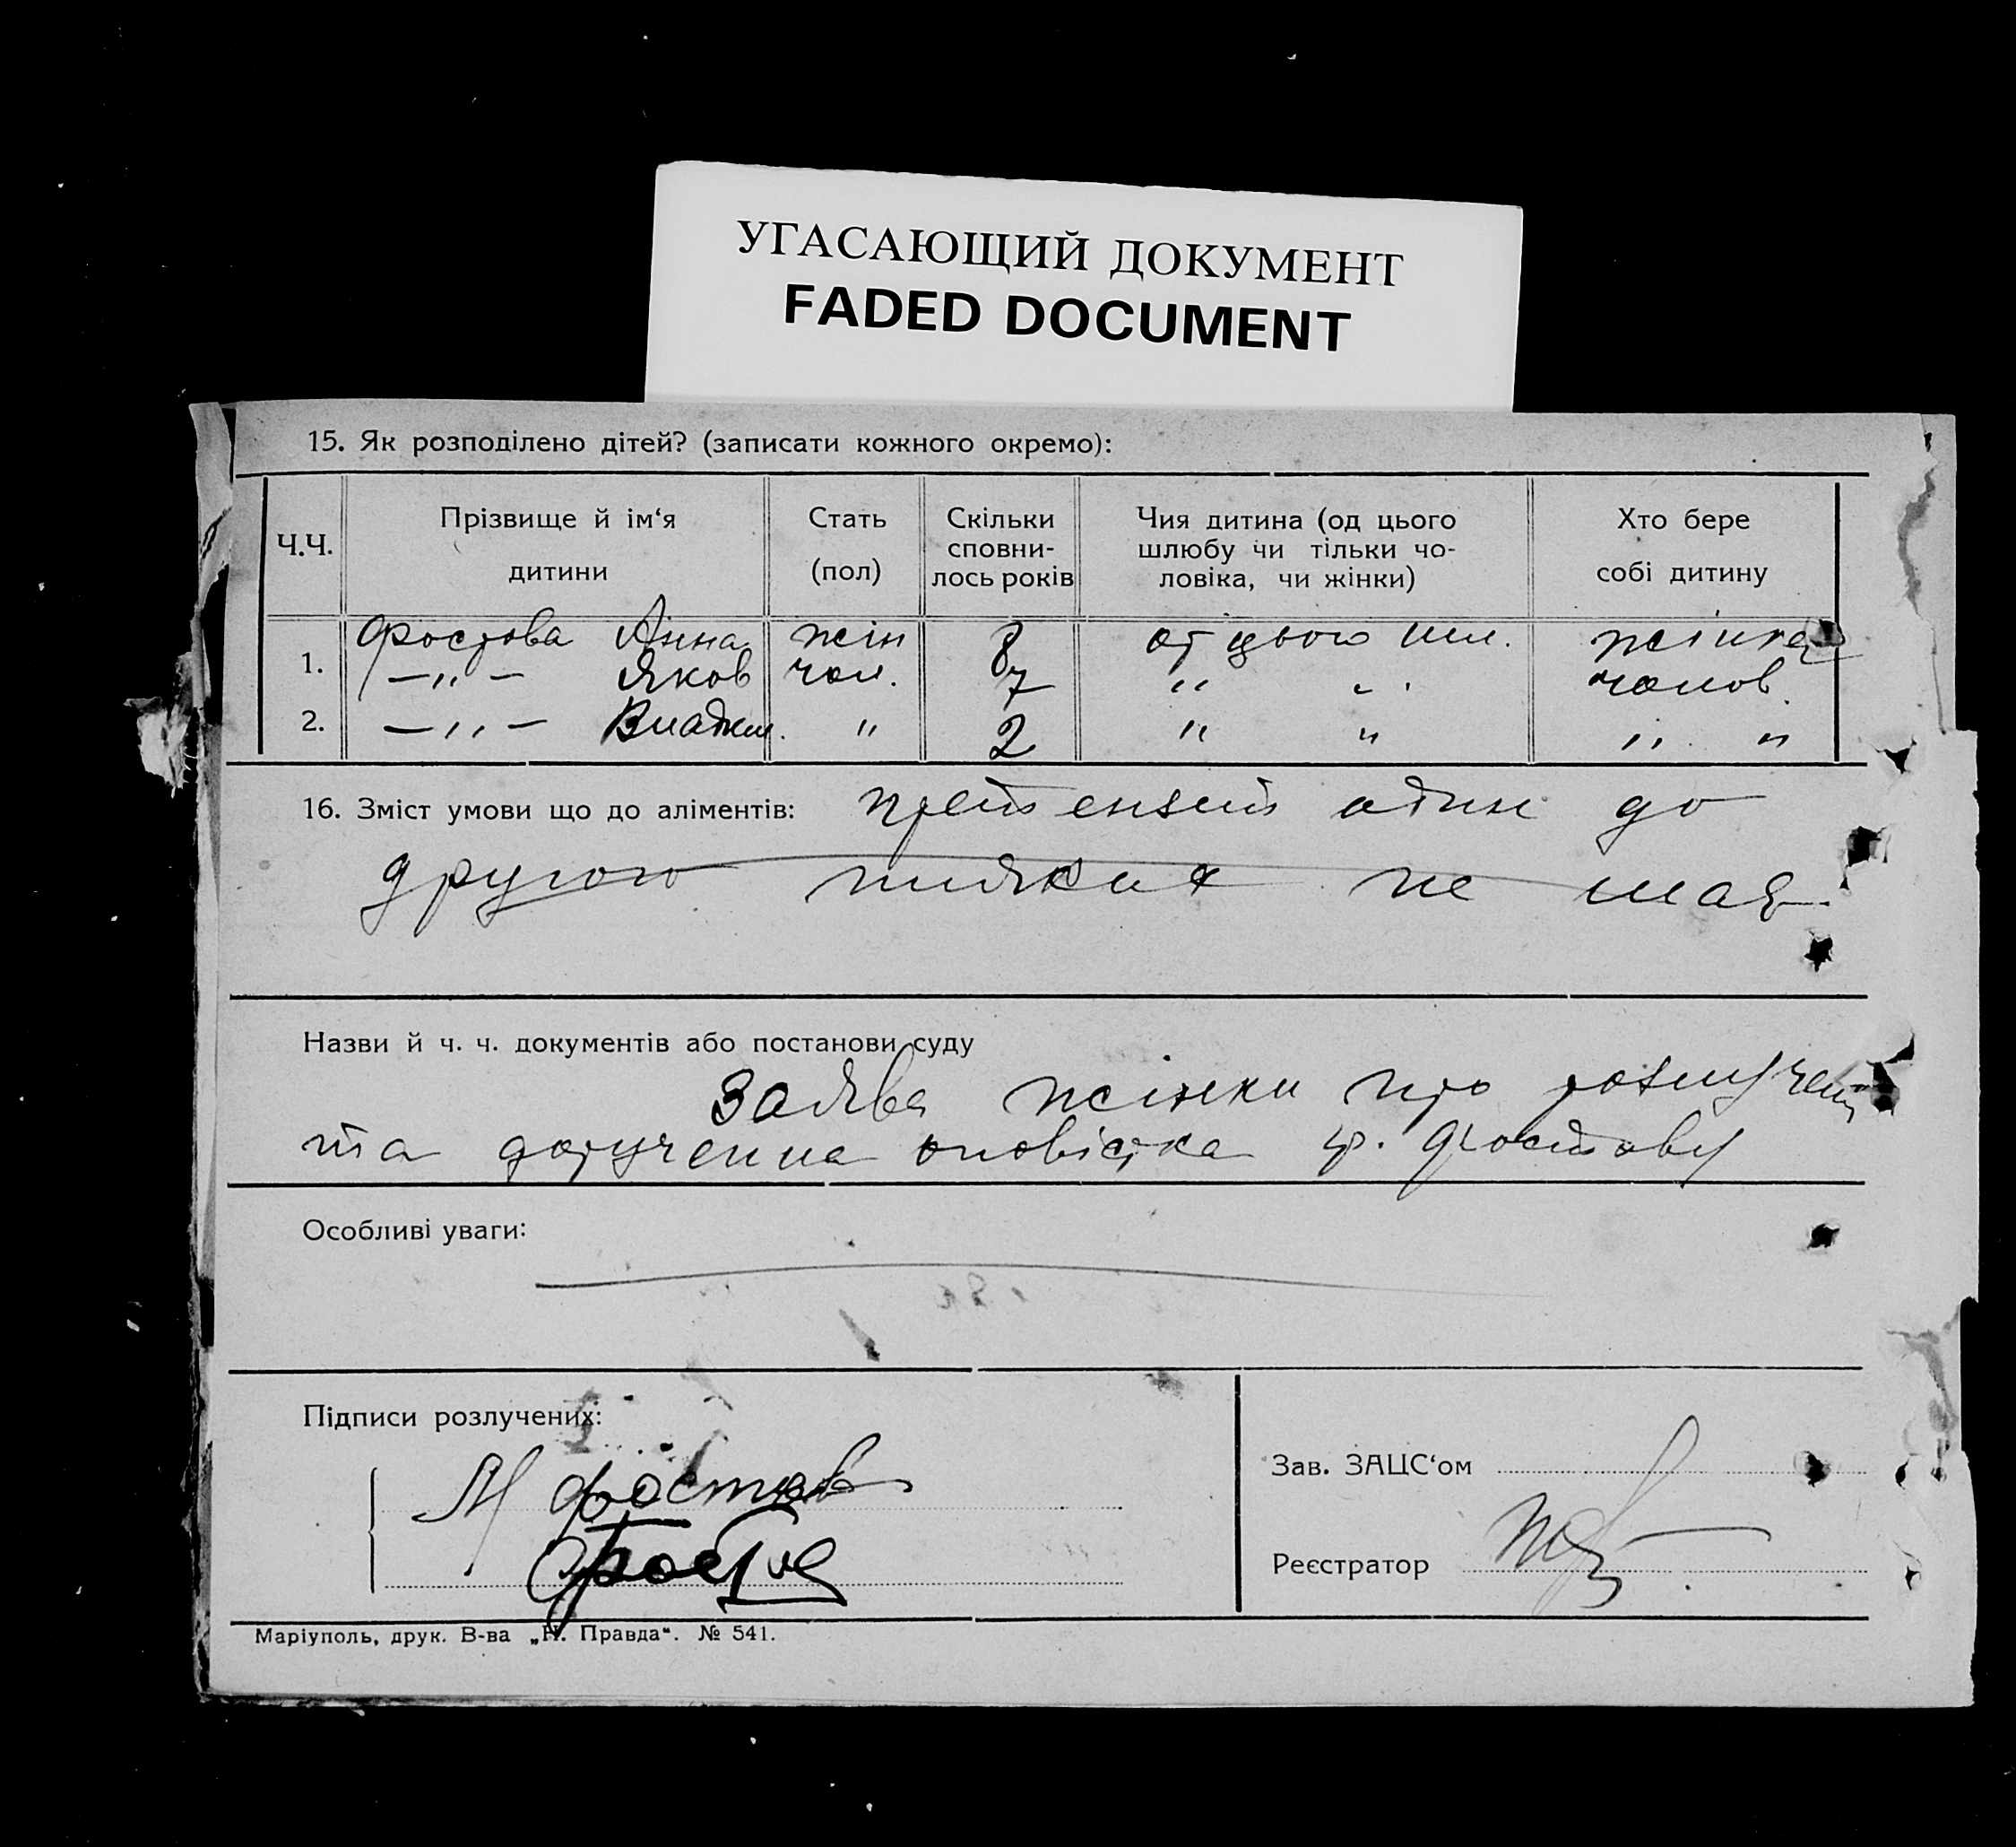 УГАСАЮЩИЙ ДОКУМЕНТ
FADED DOCUMENT
15. Як розподілено дітей? (записати кожного окремо):
Ч.Ч. Прізвище й ім‘я дитини Стать (пол) Скільки сповни-лось років Чия дитина (од цього шлюбу чи тільки чо-ловіка, чи жінки) Хто бере собі дитину
1. Фростова Анна жін 8 от цього шл. жінка
–„– Яков чол. 7 „ „ чолов.
2. –„– Владим. „ 2 „ „ „ „
16. Зміст умови що до аліментів: претензій один до
другого ніяких не має.
Назви й ч. ч. документів або постанови суду
Заява жінки про розлучен
та доручена оповістка гр. Фростову
Особливі уваги:
Підписи розлучених:
М Фростов
Зав. ЗАЦС‘ом
Реєстратор
Маріуполь, друк. В-ва „Н. Правда“. № 541.